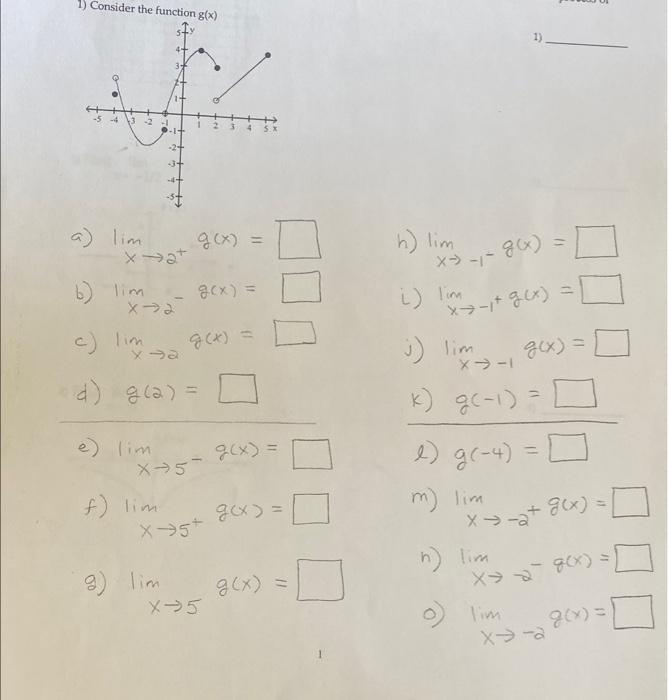 1) Consider the function g(x)
1)
5 y
4
3
2
1
-5 -4 -3 -2 -1 1 2 3 4 5 x
-1
-2
-3
-4
-5
a) lim x→2+ g(x) =
b) lim x→2- g(x) =
c) lim x→2 g(x) =
d) g(2) =
e) lim x→5- g(x) =
f) lim x→5+ g(x) =
g) lim x→5 g(x) =
h) lim x→-1- g(x) =
i) lim x→-1+ g(x) =
j) lim x→-1 g(x) =
k) g(-1) =
l) g(-4) =
m) lim x→-2+ g(x) =
n) lim x→-2- g(x) =
o) lim x→-2 g(x) =
1